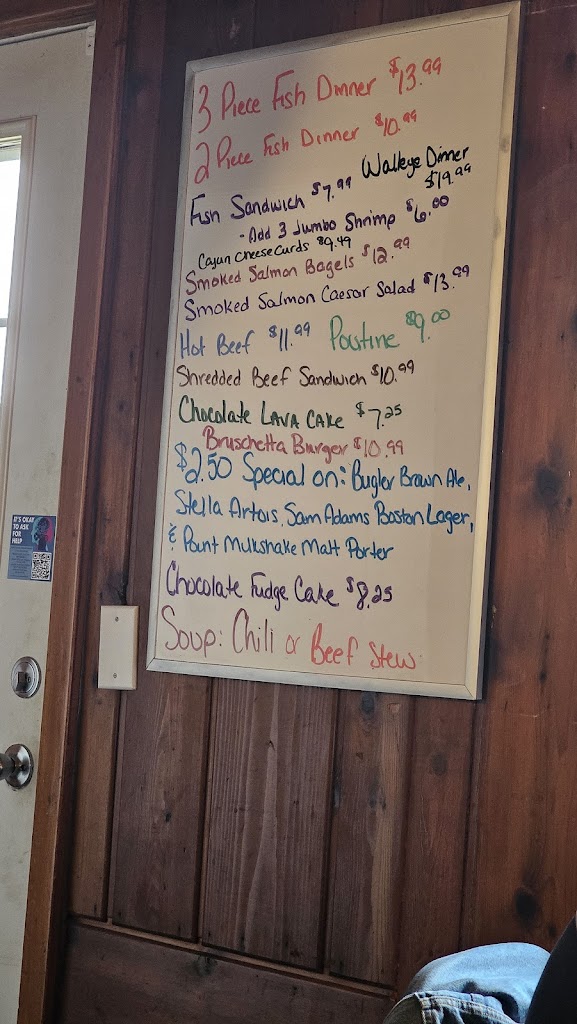 3 Piece Fish Dinner $13.99
2 Piece Fish Dinner $10.99
Walleye Dinner
$19.99
Fish Sandwich $7.99
- Add 3 Jumbo Shrimp $6.00
Cajun Cheese Curds $9.49
Smoked Salmon Bagels $12.99
Smoked Salmon Caesar Salad $13.99
Hot Beef $11.99 Poutine $9.00
Shredded Beef Sandwich $10.99
Chocolate LAVA CAKE $7.25
Bruschetta Burger $10.99
$2.50 Special on: Bugler Brown Ale,
Stella Artois, Sam Adams Boston Lager,
& Point Mulkshake Malt Porter
Chocolate Fudge Cake $8.25
Soup: Chili or Beef Stew
IT'S OKAY
TO ASK
FOR
HELP